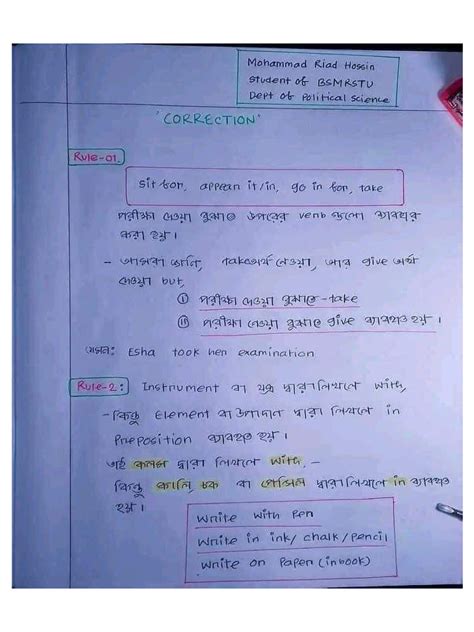 Mohammad Riad Hossin
Student of BSMRSTU
Dept of Political Science
'CORRECTION'
Rule-01.
Sit for, appear it/in, go in for, take
পরীক্ষা দেওয়া বুঝাতে উপরের verb গুলো ব্যবহার
করা হয়।
- আমরা জানি, take অর্থ নেওয়া, আর give অর্থ
দেওয়া but,
i পরীক্ষা দেওয়া বুঝাতে - take
ii পরীক্ষা নেওয়া বুঝাতে give ব্যবহৃত হয়।
যেমন: Esha took her examination
Rule-2: Instrument বা যন্ত্র দ্বারা লিখলে with,
- কিন্তু Element বা উপাদান দ্বারা লিখলে in
Preposition ব্যবহৃত হয়।
তাই কলম দ্বারা লিখলে with, -
কিন্তু কালি, চক বা পেন্সিল দ্বারা লিখলে in ব্যবহৃত
হয়।
Write with Pen
Write in ink/ chalk/pencil
Write on Paper (in book)